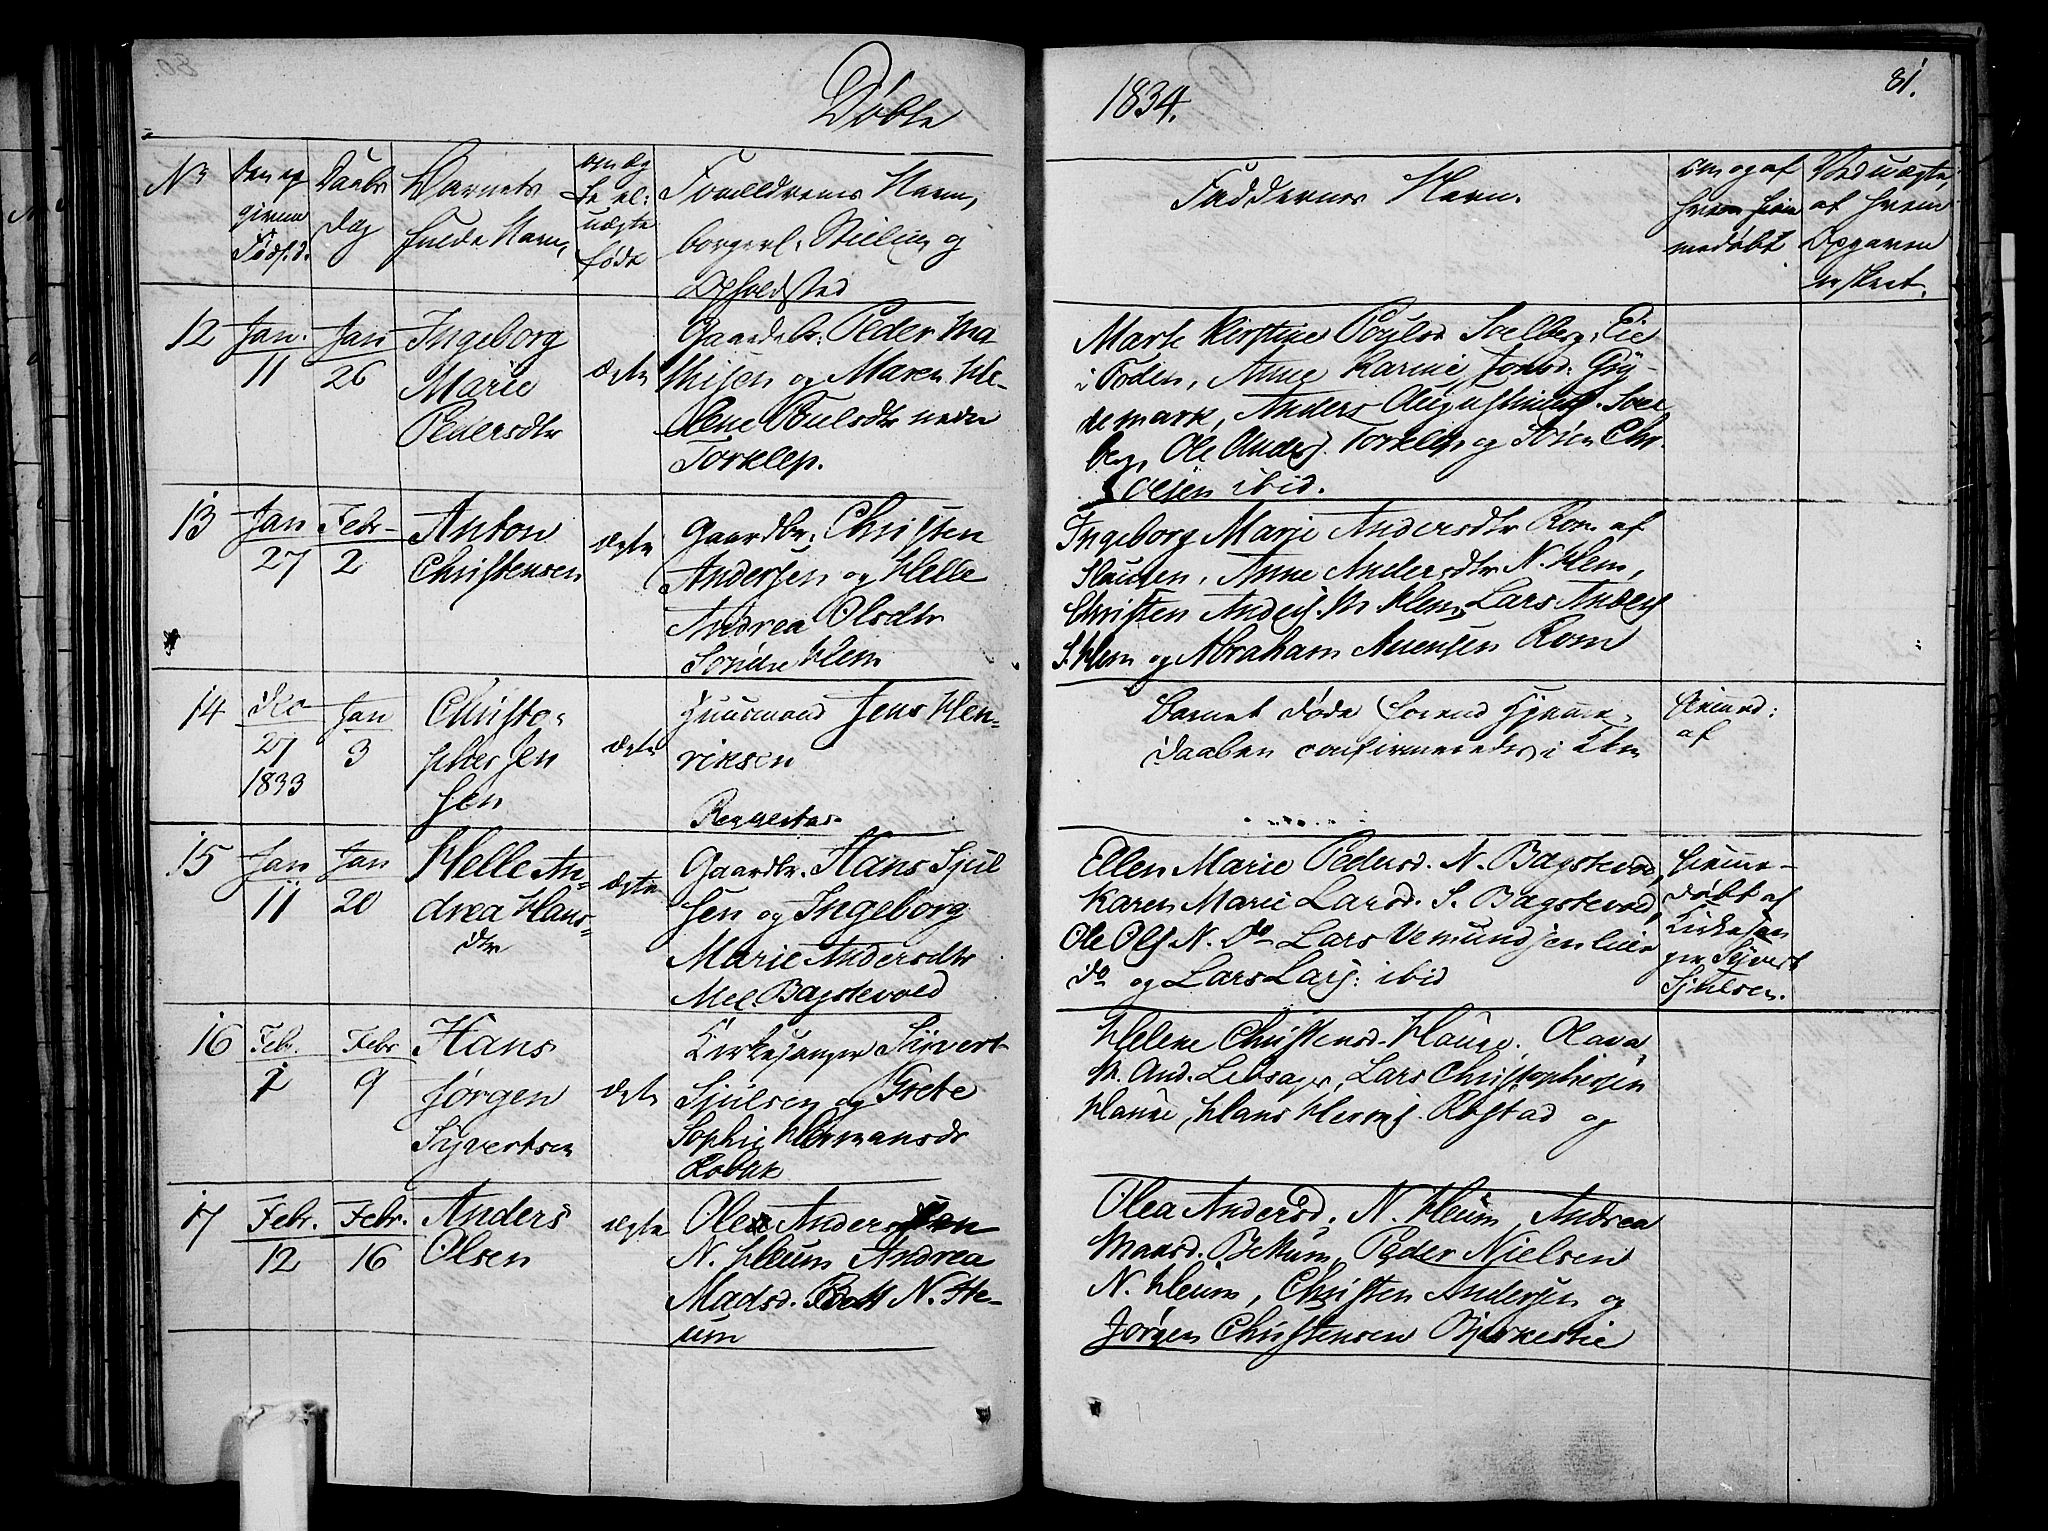 80.
Døbte
1834.
81.
No
Den op
givene
Føds.d.
Daabs
Dag
Barnets
fulde Navn,
om æg
te el:
uægte
født
Forældrenes Navn,
borgerl. Stilling og
Opholdsted
Faddernes Navn.
om og af
hvem hjem
medøbt
Ved uægte,
af hvem
Opgaven
er skeet.
12
Jan.
11
Jan
26
Ingeborg
Marie
Pedersdtr
ægte
Gaardbr. Peder Ma
thisen og Maren He-
lene Poulsdtr nedre
Torklep.
Marte Kirstine Poulsd Solberg, Eie
i Foden, Anne Karine Jonsd. Gry-
demark, Anders Augustinius. Soel
berg, Ole Anders. Torklep og Søren Chr.
Poulsen ibid.
13
Jan
27
Febr
2
Anton
Christensen
ægte
Gaardbr. Christen
Andersen og Helle
Andrea Olsdtr
Søndre Klem
Ingeborg Marie Andersdtr Rom af
Haugen, Anne Andersdtr N. Klem,
Christen Anders. M. Klem, Lars Anders
S. Klem og Abraham Auensen Rom
14
Dec
27
1833
Jan
3
Christo-
pher Jen
sen
ægte
Huusmand Jens Hen-
riksen
Reggestad
Barnet døde forend Hjemme-
daaben confirmeredes i Kbn
Hjemmed:
af
15
Jan
11
Jan
20
Helle An-
drea Hans-
dtr
ægte
Gaardbr. Hans Sjul
sen og Ingeborg
Marie Andersdtr
Mel. Bagstevold
Ellen Marie Pedersd. N. Bagstevold,
Karen Marie Larsd. S. Bagstevold,
Ole Ols N. Do Lars Vemundsen Eie
Do og Lars Lars: ibid
hjemme-
døbt af
Kirkesan
ger Syvert
Sjulsen.
16
Febr.
2
Febr
9
Hans
Jørgen
Syvertsen
ægte
Kirkesanger Syvert
Sjulsen og Grete
Sophie Hermansdr
Robæk
Helene Christensd. Hauge, Olava
M. And. Ledsager, Lars Christophersen
Hauge, Hans Henriks. Røstad og
17
Febr.
12
Febr.
16
Anders
Olsen
ægte
Ole Andersen
N. Heum Andrea
Madsd. Bett N. He-
um
Olea Andersd. N. Heum, Andrea
Mansd. Bekum, Peder Nielsen
N. Heum, Christen Andersen og
Jørgen Christensen Bjerkestie